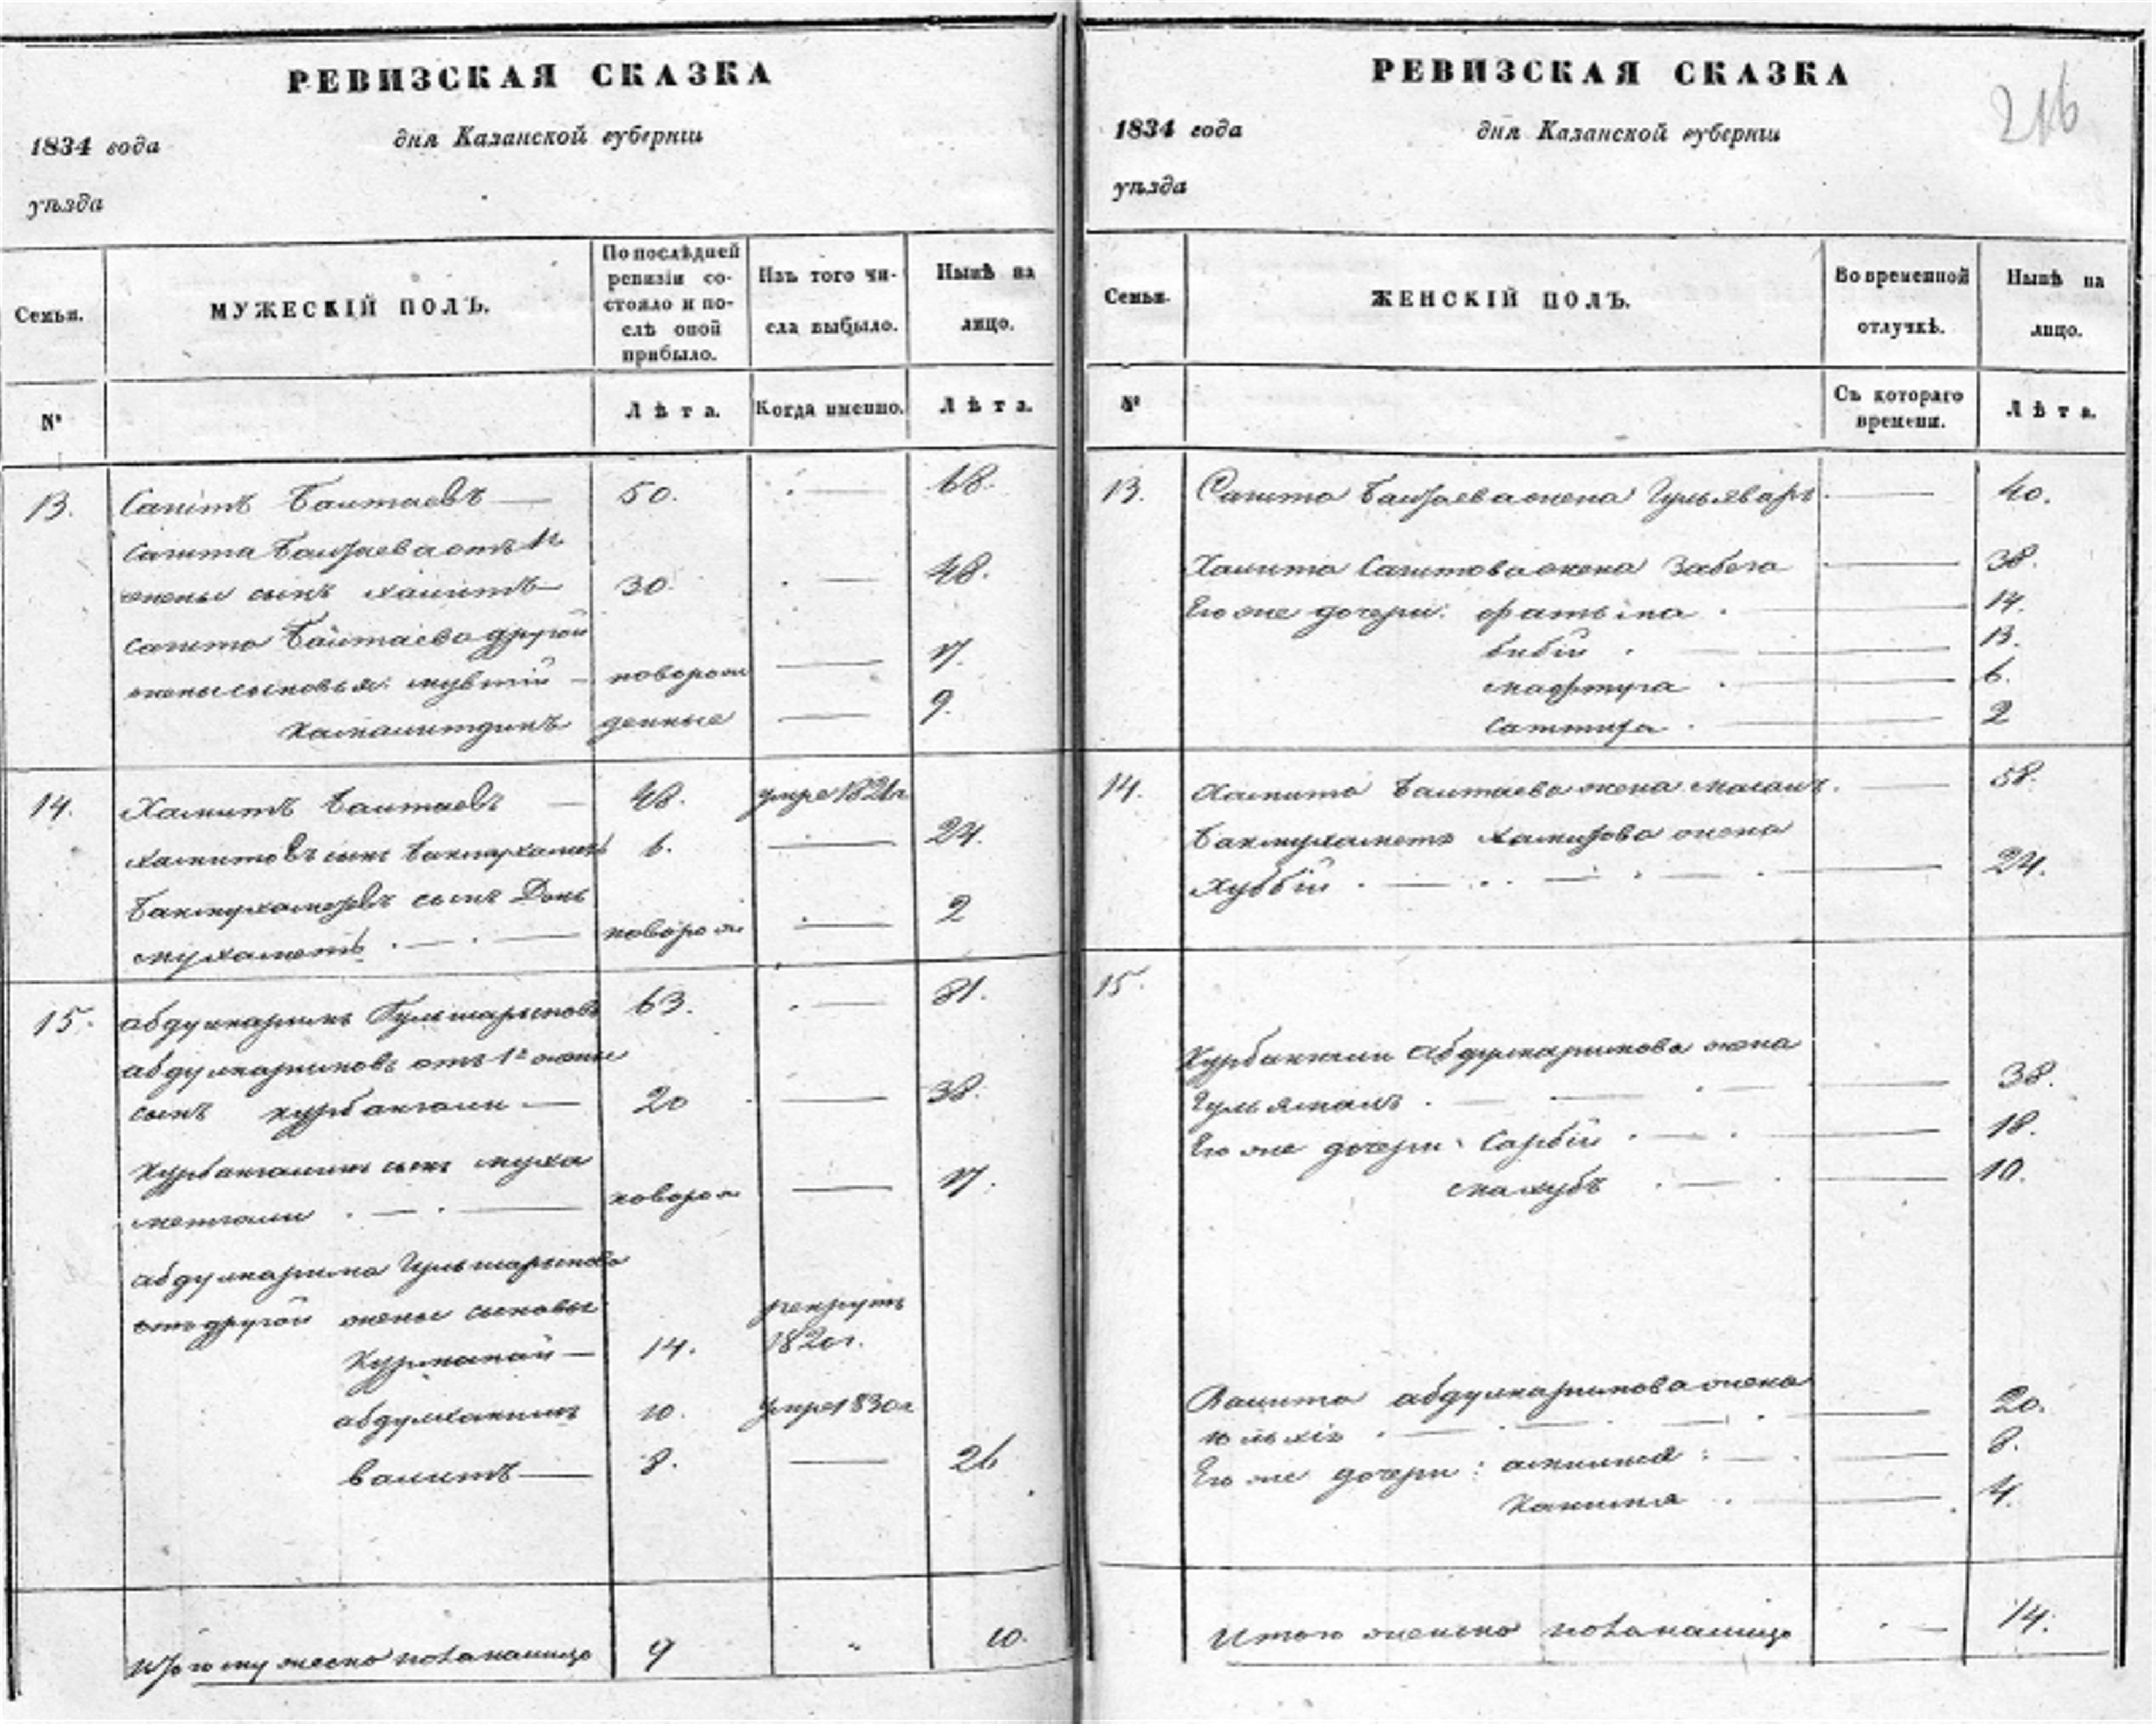 РЕВИЗСКАЯ СКАЗКА
1834 года дня Казанской губерніи
уѣзда
Семьи. МУЖЕСКІЙ ПОЛЪ. По послѣдней ревизіи состояло и послѣ оной прибыло. Изъ того числа выбыло. Нынѣ на лицо.
№ Лѣта. Когда именно. Лѣта.
13. Сагитъ Баитаевъ — 50. — 68.
Сагита Баитаева отъ 1й
жены сынъ Халитъ — 30. — 48.
Сагита Баитаева другой
жены сыновья: — новорож — 17.
Камалитдинъ денные — 9.
14. Хамитъ Баитаевъ — 48. умре 1821г
Хамитовъ сынъ Бакмухаметъ 6. — 24.
Бакмухаметовъ сынъ Дин
мухаметъ . — . — новорож — 2
15. Абдулкаримъ Гульшарыповъ 63. — 81.
Абдулкаримовъ отъ 1й жены
сынъ Курбангали — 20 — 38.
Курбангалиевъ сынъ Муха
метгали . — . — новорож — 17.
Абдулкарима Гульшарыпова
отъ другой жены сыновья
Курманай — 14. рекрутъ 1820г.
Абдулхакимъ 10. умре 1830г
Валитъ — 8. — 26
Итого мужеска пола налицо 9 " 10.
РЕВИЗСКАЯ СКАЗКА
216
1834 года дня Казанской губерніи
уѣзда
Семьи. ЖЕНСКІЙ ПОЛЪ. Во временной отлучкѣ. Нынѣ на лицо.
№ Съ котораго времени. Лѣта.
13. Сагита Баитаева жена Гульяваръ — 40.
Халита Сагитова жена Забега — 38.
Его же дочери: Фатыма . — 14.
Бибіи . — 13.
Мафтуга . — 6.
Саттига . — 2
14. Хамита Баитаева жена . — 58.
Бакмухаметъ Хамитова жена
Хуббіи . — 24.
15.
Курбангали Абдулкаримова жена
Гульямалъ . — 38.
Его же дочери: Сарбіи . — 18.
Махубъ . — 10.
Валита Абдулкаримова жена
. — 20.
Его же дочери: — 8.
. — 4.
Итого женска пола налицо . — 14.